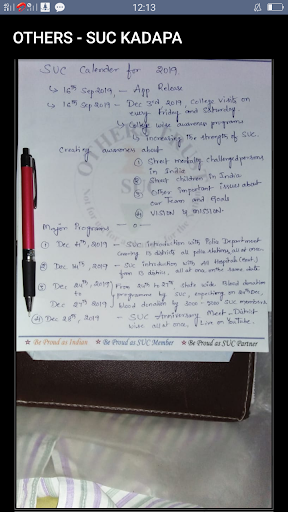 12:13
OTHERS - SUC KADAPA
SUC Calender for 2019
↳ 16th Sep 2019, - App Release
↳ 16th Sep 2019 - Dec 3rd 2019, College Visits on
every Friday and Saturday
↳ College wise awareness programs
increasing the strength of SUC.
Creating awareness about
① Street mentally challenged persons
in India
② Street children in India
③ Other Important issues about
our Team and Goals
④ VISION & MISSION
SUC
Major Programs — 0 —
① Dec 4th, 2019 - SUC Introduction with Police Department
13 districts all police stations, all at once.
② Dec 14th, 2019 - SUC Introduction with All Hospitals (Govt.)
from 13 districts, all at once, on the same date
③ Dec 20th, 2019 From 20th to 27th State wide Blood donation
programme by SUC, expecting
Dec 27th 2019 blood donation by 3000 - 5000 SUC members
④ Dec 28th, 2019 - SUC Anniversary Meet - District
wise all at once, Live on YouTube.
★ Be Proud as Indian ★ Be Proud as SUC Member ★ Be Proud as SUC Partner